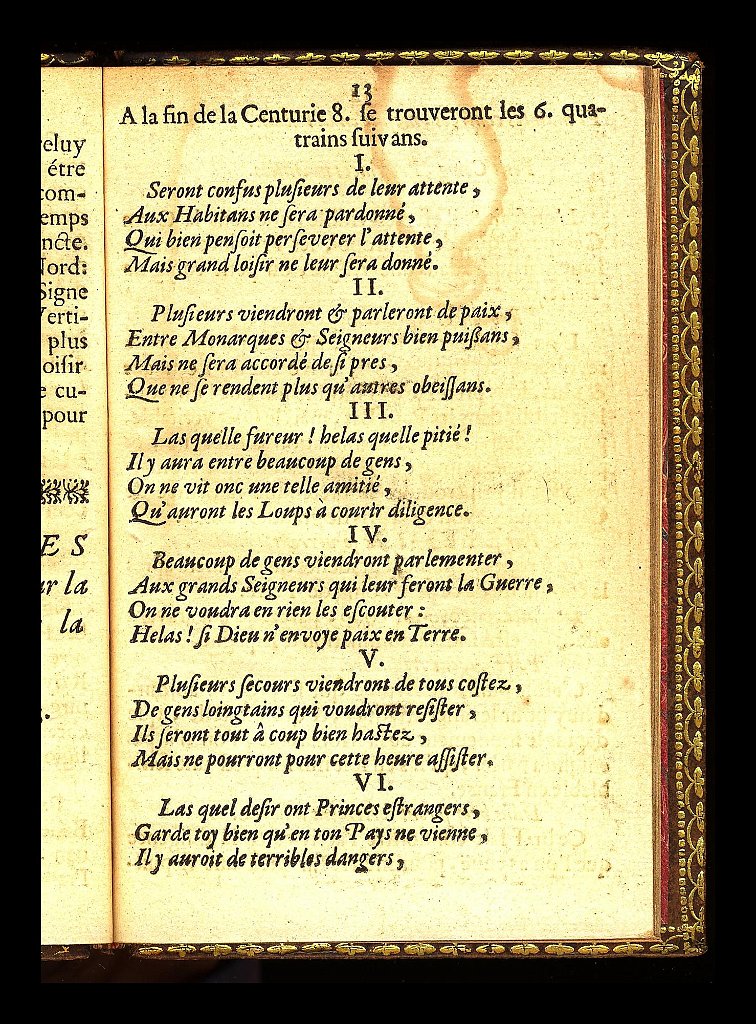 eluy
étre
com-
emps
ncte.
Nord:
Signe
Verti-
plus
oisir
e cu-
pour
E S
ur la
la
13
A la fin de la Centurie 8. ſe trouveront les 6. qua-
trains ſuivans.
I.
Seront confus pluſieurs de leur attente,
Aux Habitans ne ſera pardonné,
Qui bien penſoit perſeverer l'attente,
Mais grand loiſir ne leur ſera donné.
II.
Pluſieurs viendront & parleront de paix,
Entre Monarques & Seigneurs bien puißans,
Mais ne ſera accordé de ſi pres,
Que ne ſe rendent plus qu'autres obeiſſans.
III.
Las quelle fureur ! helas quelle pitié !
Il y aura entre beaucoup de gens,
On ne vit onc une telle amitié,
Qu'auront les Loups à courir diligence.
IV.
Beaucoup de gens viendront parlementer,
Aux grands Seigneurs qui leur feront la Guerre,
On ne voudra en rien les eſcouter :
Helas ! ſi Dieu n'envoye paix en Terre.
V.
Pluſieurs ſecours viendront de tous coſtez,
De gens loingtains qui voudront reſiſter,
Ils ſeront tout â coup bien haſtez,
Mais ne pourront pour cette heure aſſiſter.
VI.
Las quel deſir ont Princes eſtrangers,
Garde toy bien qu'en ton Pays ne vienne,
Il y auroit de terribles dangers,